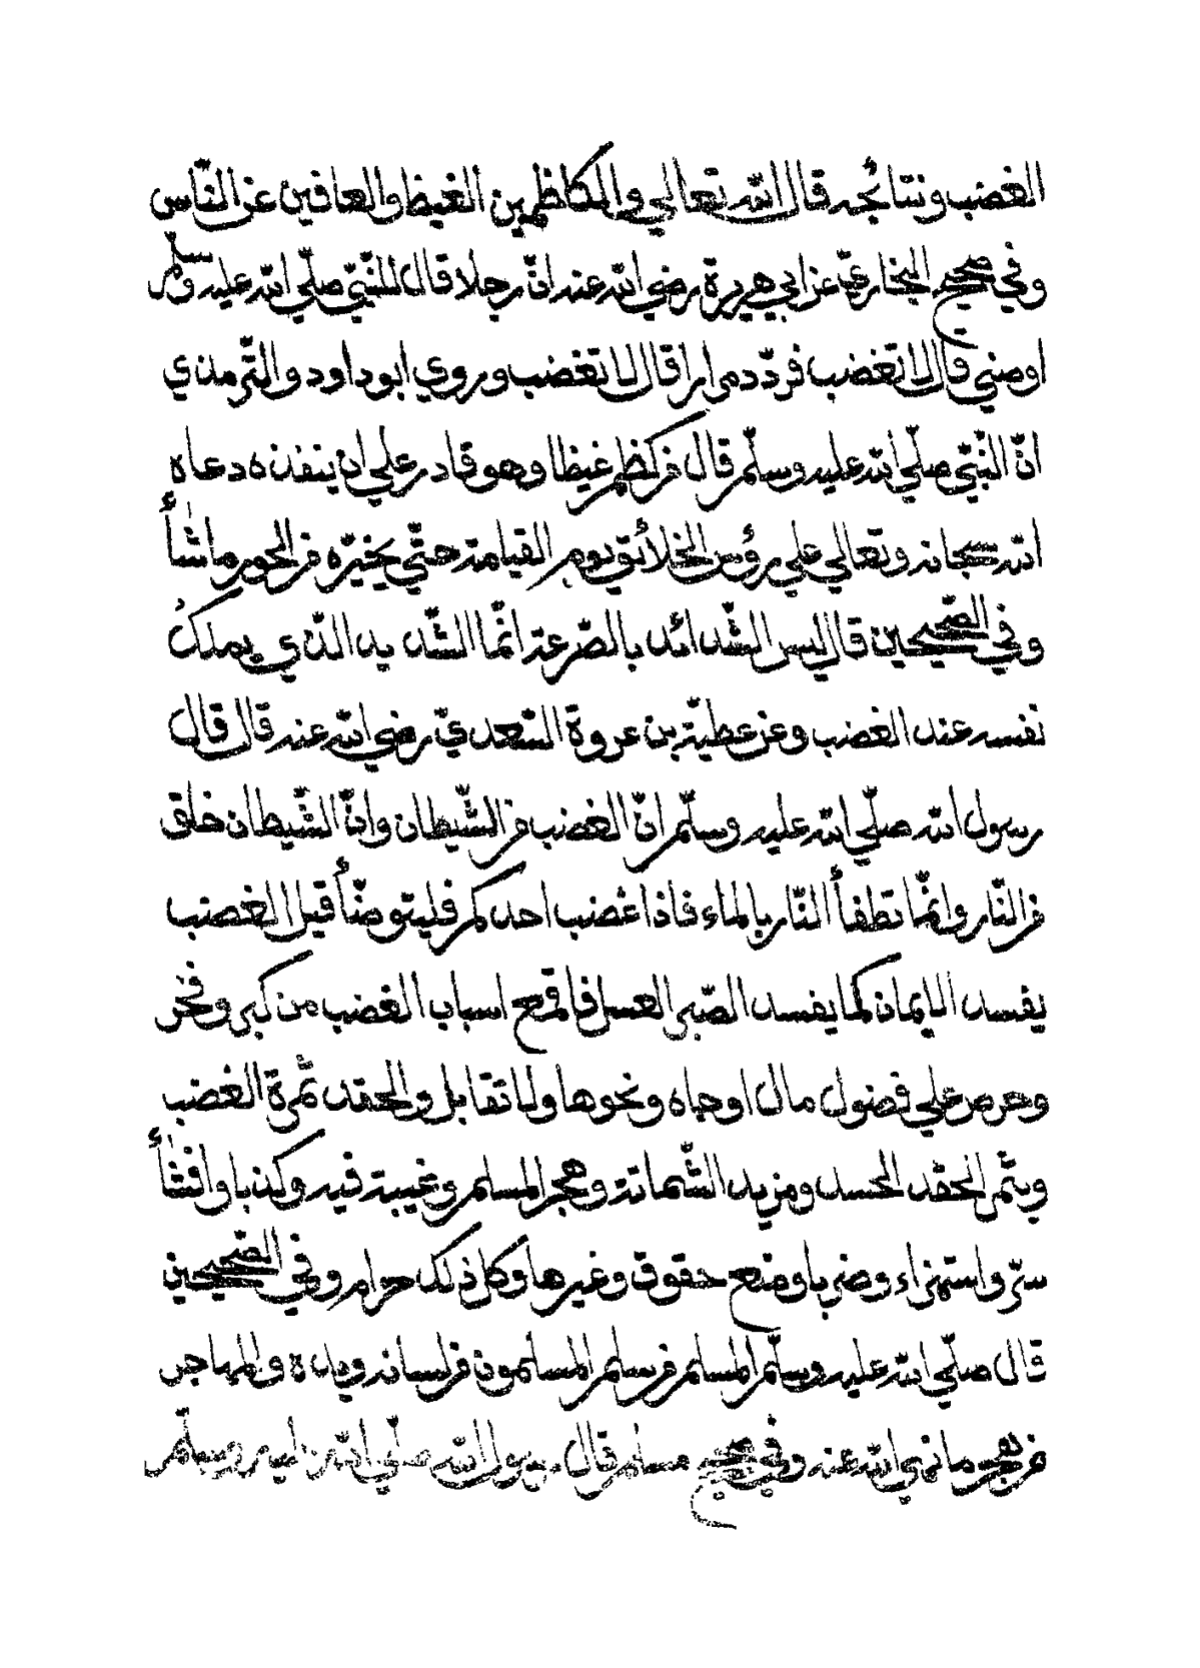 الغضب ونتائجه قال الله تعالي والكاظمين الغيظ والعافين عن النّاس
وفي صحيح البخاريّ عن ابي هريرة رضي الله عنه انّ رجلا قال للنّبيّ صلّي الله عليه وسلّم
اوصني قال لا تغضب فردّد مرارا قال لا تغضب وروي ابو داود والتّرمذي
انّ النّبيّ صلّي الله عليه وسلّم قال من كظم غيظا وهو قادر علي ان ينفذه دعاه
الله سبحانه وتعالي علي رؤس الخلائق يوم القيامة حتّي يخيّره من الحور ما شأ
وفي الصّحيحين قال ليس الشّدائد بالصّرعة انّما الشّديد الّذي يملك
نفسه عند الغضب وعن عطيّة بن عروة السّعديّ رضي الله عنه قال قال
رسول الله صلّي الله عليه وسلّم انّ الغضب من الشّيطان وانّ الشّيطان خلق
من النّار وانّما تطفأ النّار بالماء فاذا غضب احدكم فليتوضّأ قيل الغضب
يفسد الايمان كما يفسد الصّبر العسل فاقمع اسباب الغضب من كبر وفخر
وحرص علي فضول مال او جاه ونحوها ولا تقابل والحقد ثمرة الغضب
ويثمر الحقد الحسد ومزيد الشّماتة وهجر المسلم وغيبة فيه وكذبا وافشأ
سرّ واستهزاء وضربا ومنع حقوق وغيرها وكل ذلك حرام وفي الصّحيحين
قال صلّي الله عليه وسلّم المسلم من سلم المسلمون من لسانه ويده والمهاجر
من هجر ما نهي الله عنه وفي صحيح مسلم قال رسول الله صلّي الله عليه وسلّم